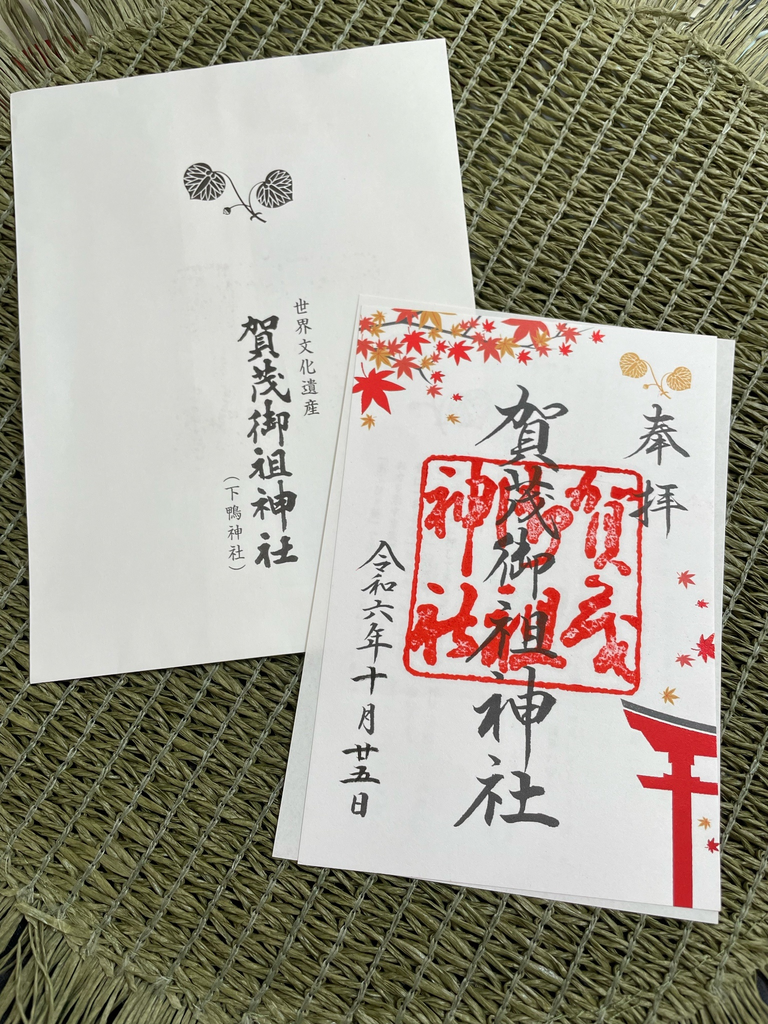 世界文化遺産
賀茂御祖神社
(下鴨神社)
奉拝
賀茂御祖神社
賀茂
御祖
神社
令和六年十月廿五日